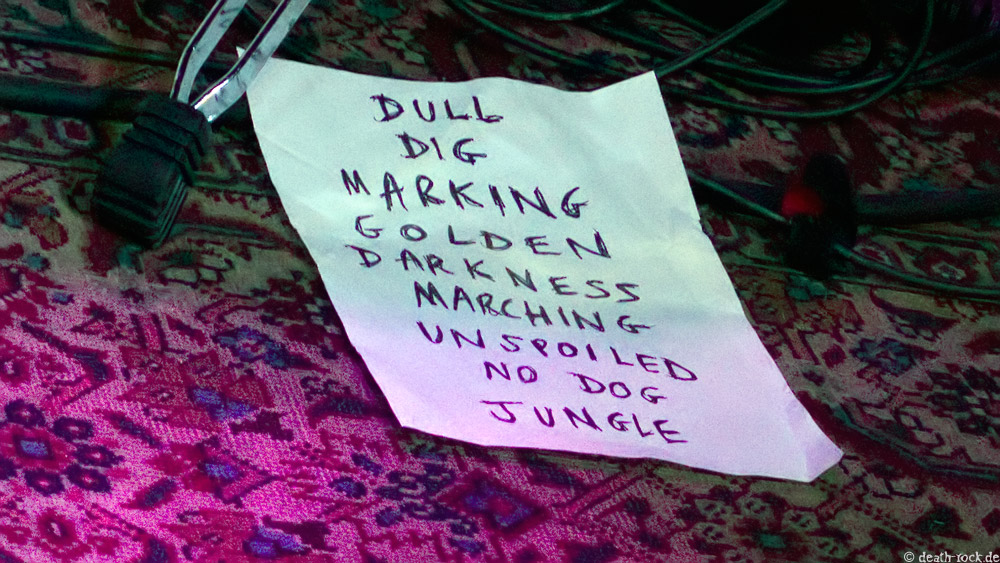 DULL
DIG
MARKING
GOLDEN
DARKNESS
MARCHING
UNSPOILED
NO DOG
JUNGLE
© death-rock.de